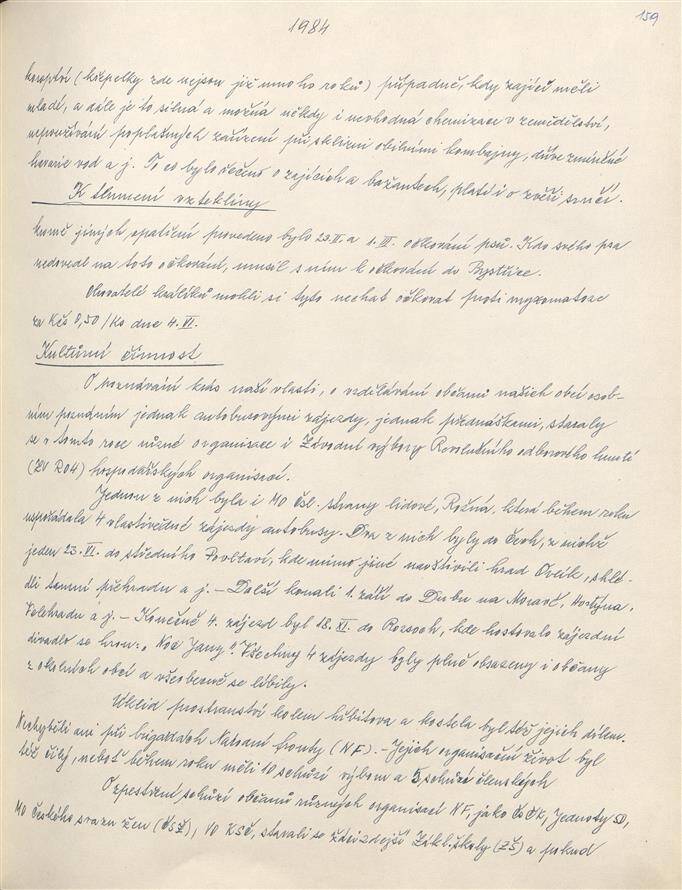 1984
159
koroptví (křepelky zde nejsou již mnoho roků) případně, kdy zajíci měli
mladí, a dále je to silná a možná někdy i nevhodná chemizace v zemědělství,
nepoužívání poplašných zařízení při sklizni obilními kombajny, dříve zmíněné
havarie vod a j. To co bylo řečeno o zajících a bažantech, platí i o zvěři srnčí.
K tlumení vztekliny
kromě jiných opatření provedeno bylo 23.II. a 1.III. očkování psů. Kdo svého psa
nedovedl na toto očkování, musil s ním k očkování do Bystřice.
Chovatelé králíků mohli si tyto nechat očkovat proti myxomatose
za Kčs 8,50/ks dne 4.VI.
Kulturní činnost
O poznávání krás naší vlasti, o vzdělávání občanů našich obcí osob-
ním poznáním jednak autobusovými zájezdy, jednak přednáškami, staraly
se v tomto roce různé organisace i Závodní výbory Revolučního odborového hnutí
(ZV ROH) hospodářských organisací.
Jednou z nich byla i MO Čsl. strany lidové, Rožná, která během roku
uspořádala 4 vlastivědné zájezdy autobusy. Dva z nich byly do Čech, z nichž
jeden 23.VI. do středního Povltaví, kde mimo jiné navštívili hrad Orlík, shlé-
dli tamní přehradu a j. – Další konali 1. září do Dubu na Moravě, Hostýna,
Velehradu a j. – Konečně 4. zájezd byl 18.XI. do Rozsoch, kde hostovalo zájezdní
divadlo se hrou: „Noc Jany“. Všechny 4 zájezdy byly plně obsazeny i občany
z okolních obcí a všeobecně se líbily.
Úklid prostranství kolem hřbitova a kostela byl též jejich dílem.
Nechyběli ani při brigádách Národní fronty (NF). – Jejich organisační život byl
též čilý, neboť během roku měli 10 schůzí výboru a 5 schůzí členských
O zpestření schůzí občanů různých organisací NF, jako ČSČK, Jednoty SD,
MO Českého svazu žen (ČSŽ), VO KSČ, starali se žáci zdejší Zákl. školy (ZŠ) a pokud